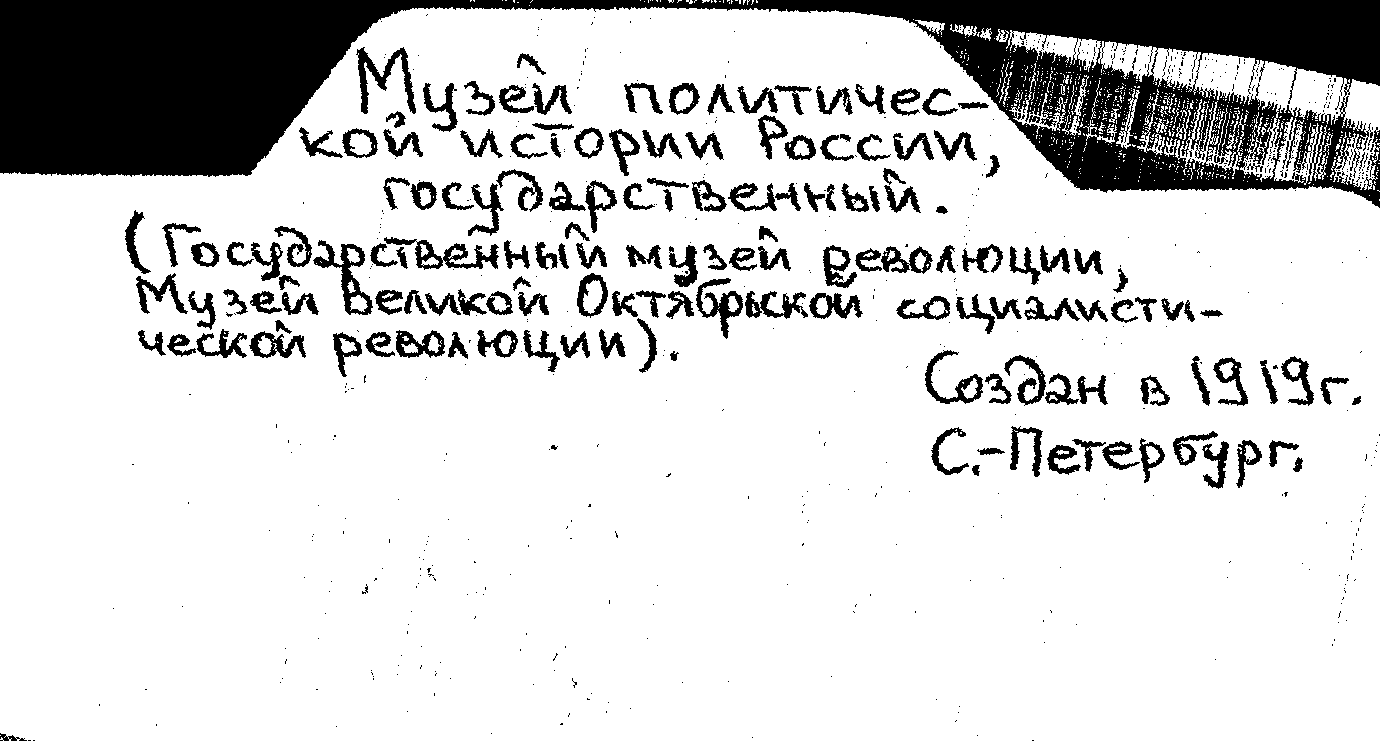 Музей политичес-
кой истории России,
государственный.
(Государственный музей революции,
Музей Великой Октябрьской социалисти-
ческой революции).
Создан в 1919г.
С.-Петербург.